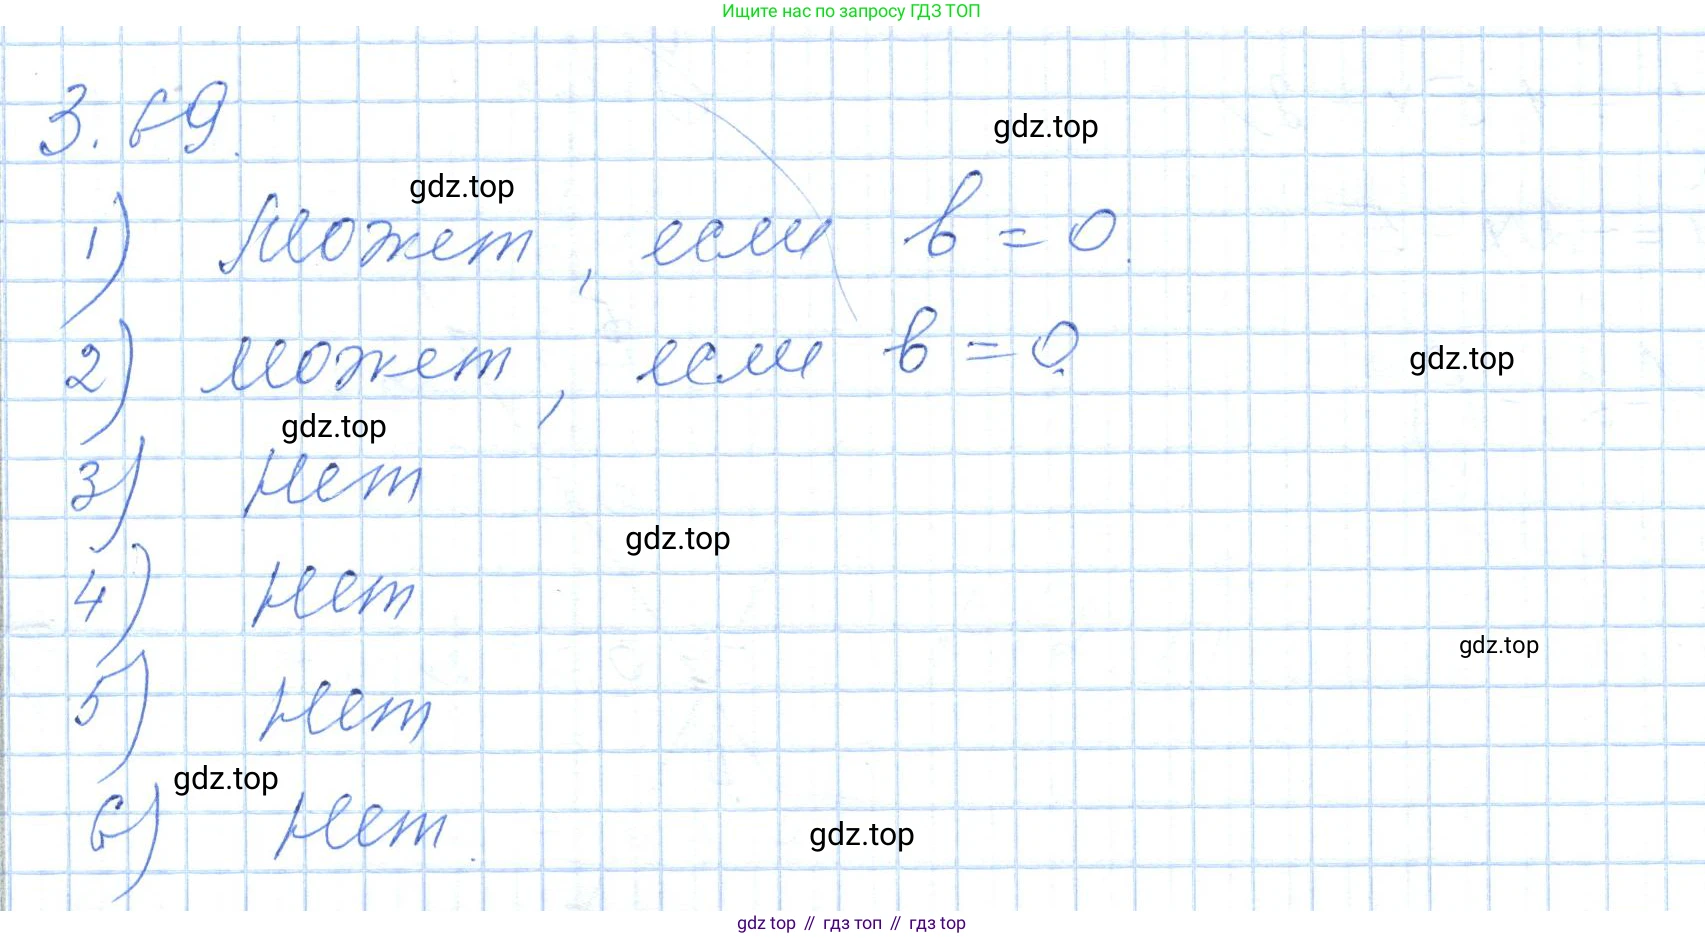 Ищите нас по запросу ГДЗ ТОП
3.69.
gdz.top
gdz.top
1) Может, если b = 0.
2) может, если b = 0.
gdz.top
gdz.top
3) Нет
gdz.top
4) Нет
gdz.top
5) Нет
gdz.top
6) Нет.
gdz.top
gdz top // гдз топ // gdz top